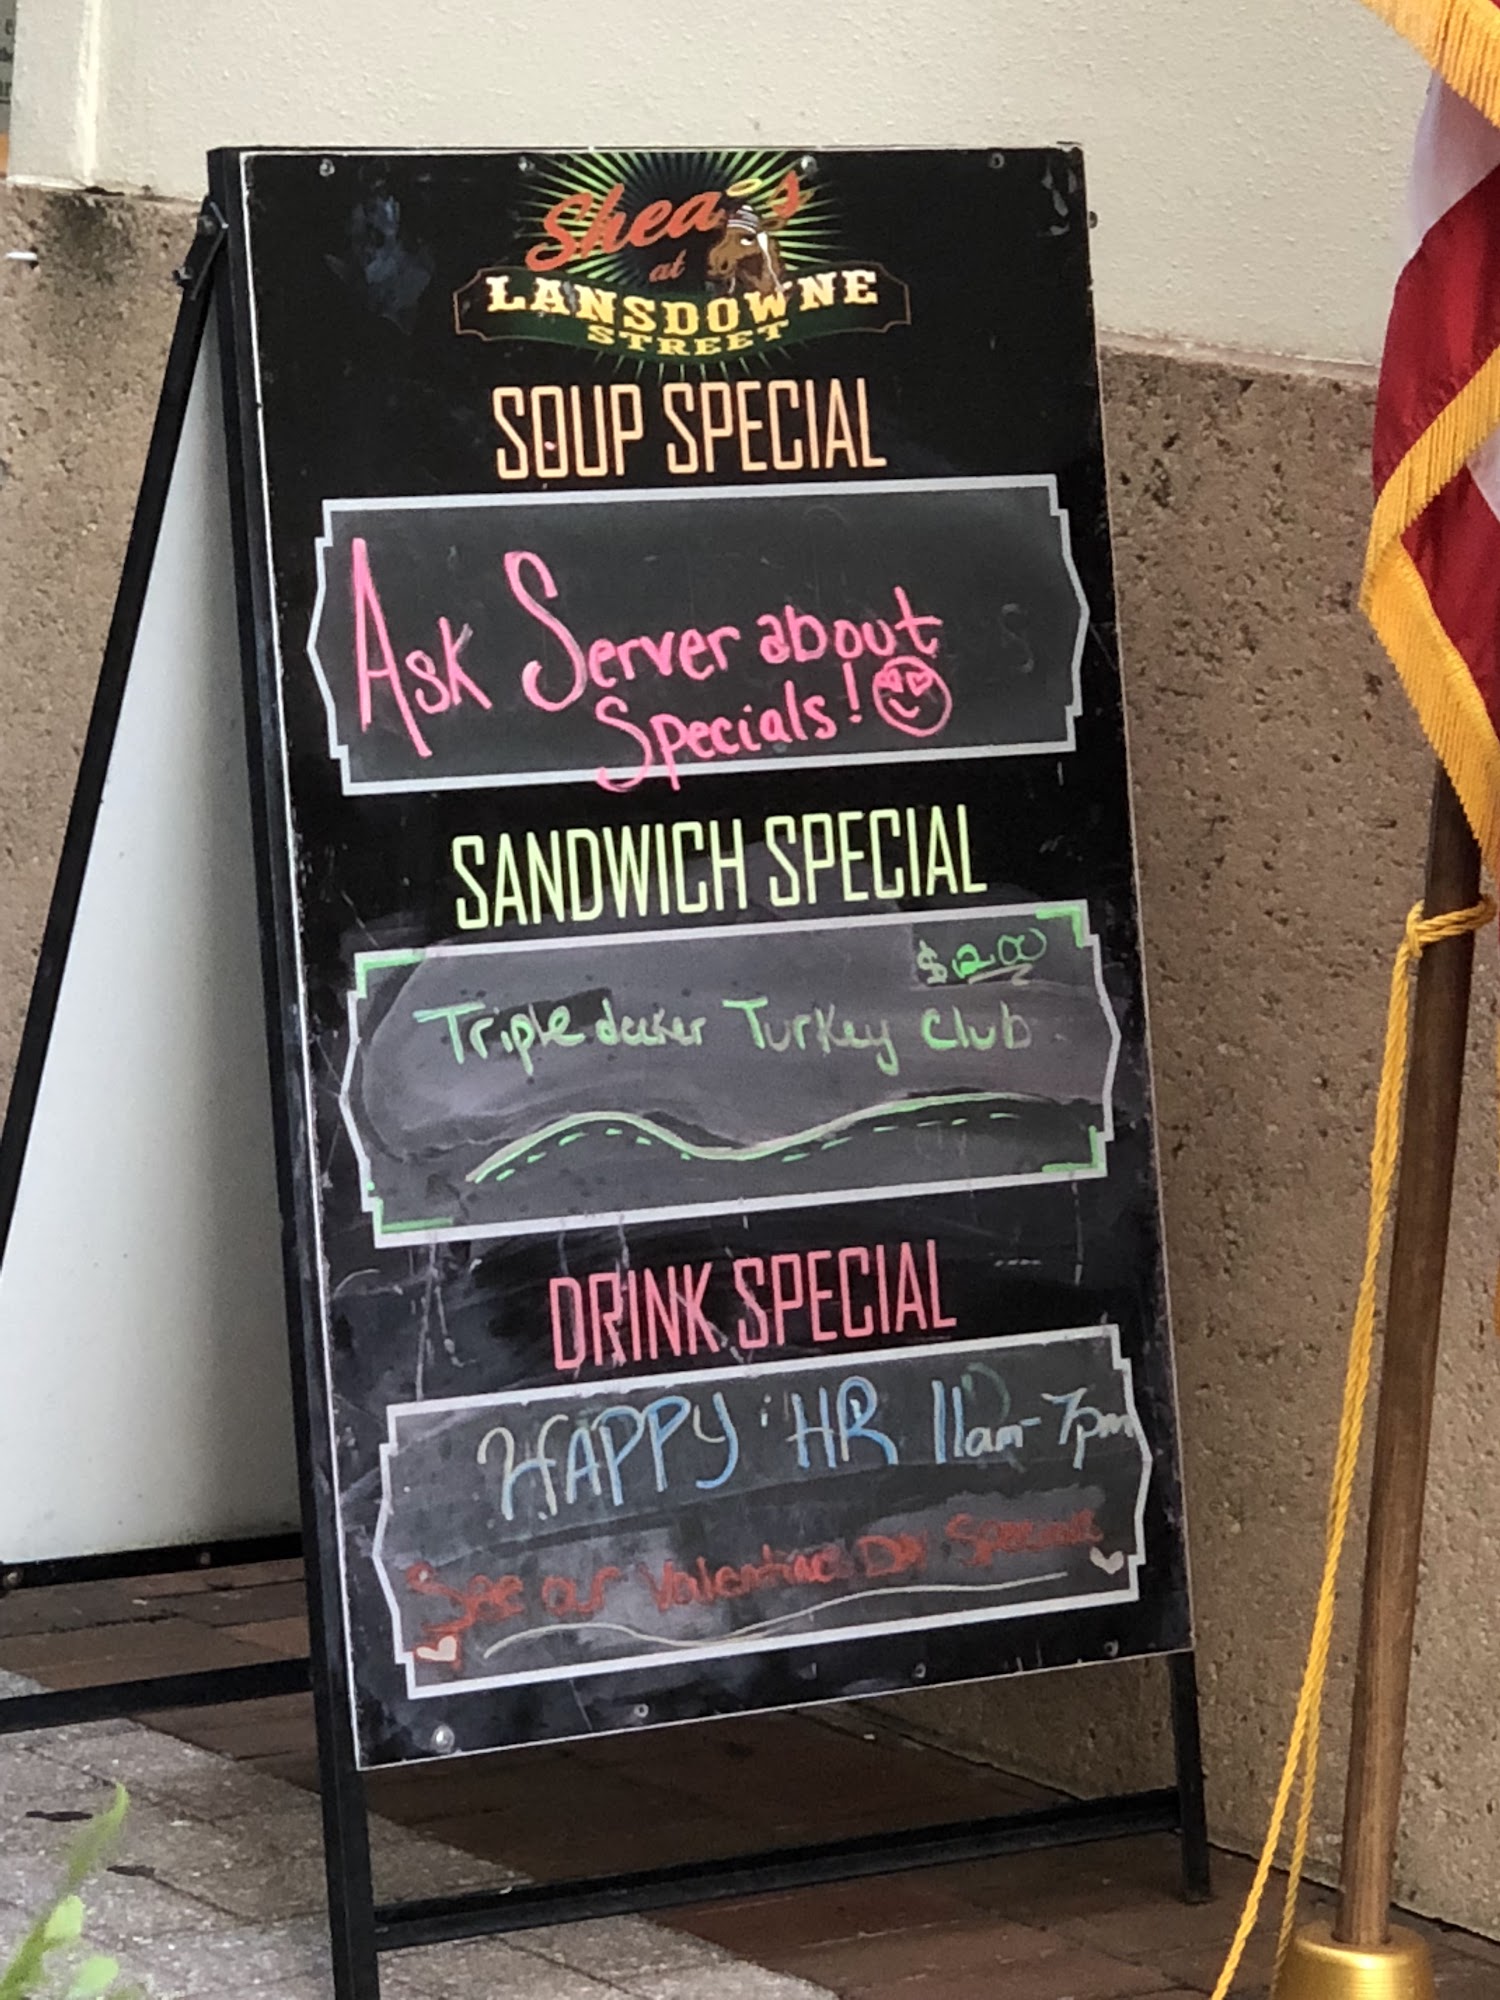 Shea's
at
LANSDOWNE
STREET
SOUP SPECIAL
Ask Server about
Specials!
SANDWICH SPECIAL
$12.00
Triple decker Turkey Club
DRINK SPECIAL
HAPPY HR 11am-7pm
See our Valentines Day Specials